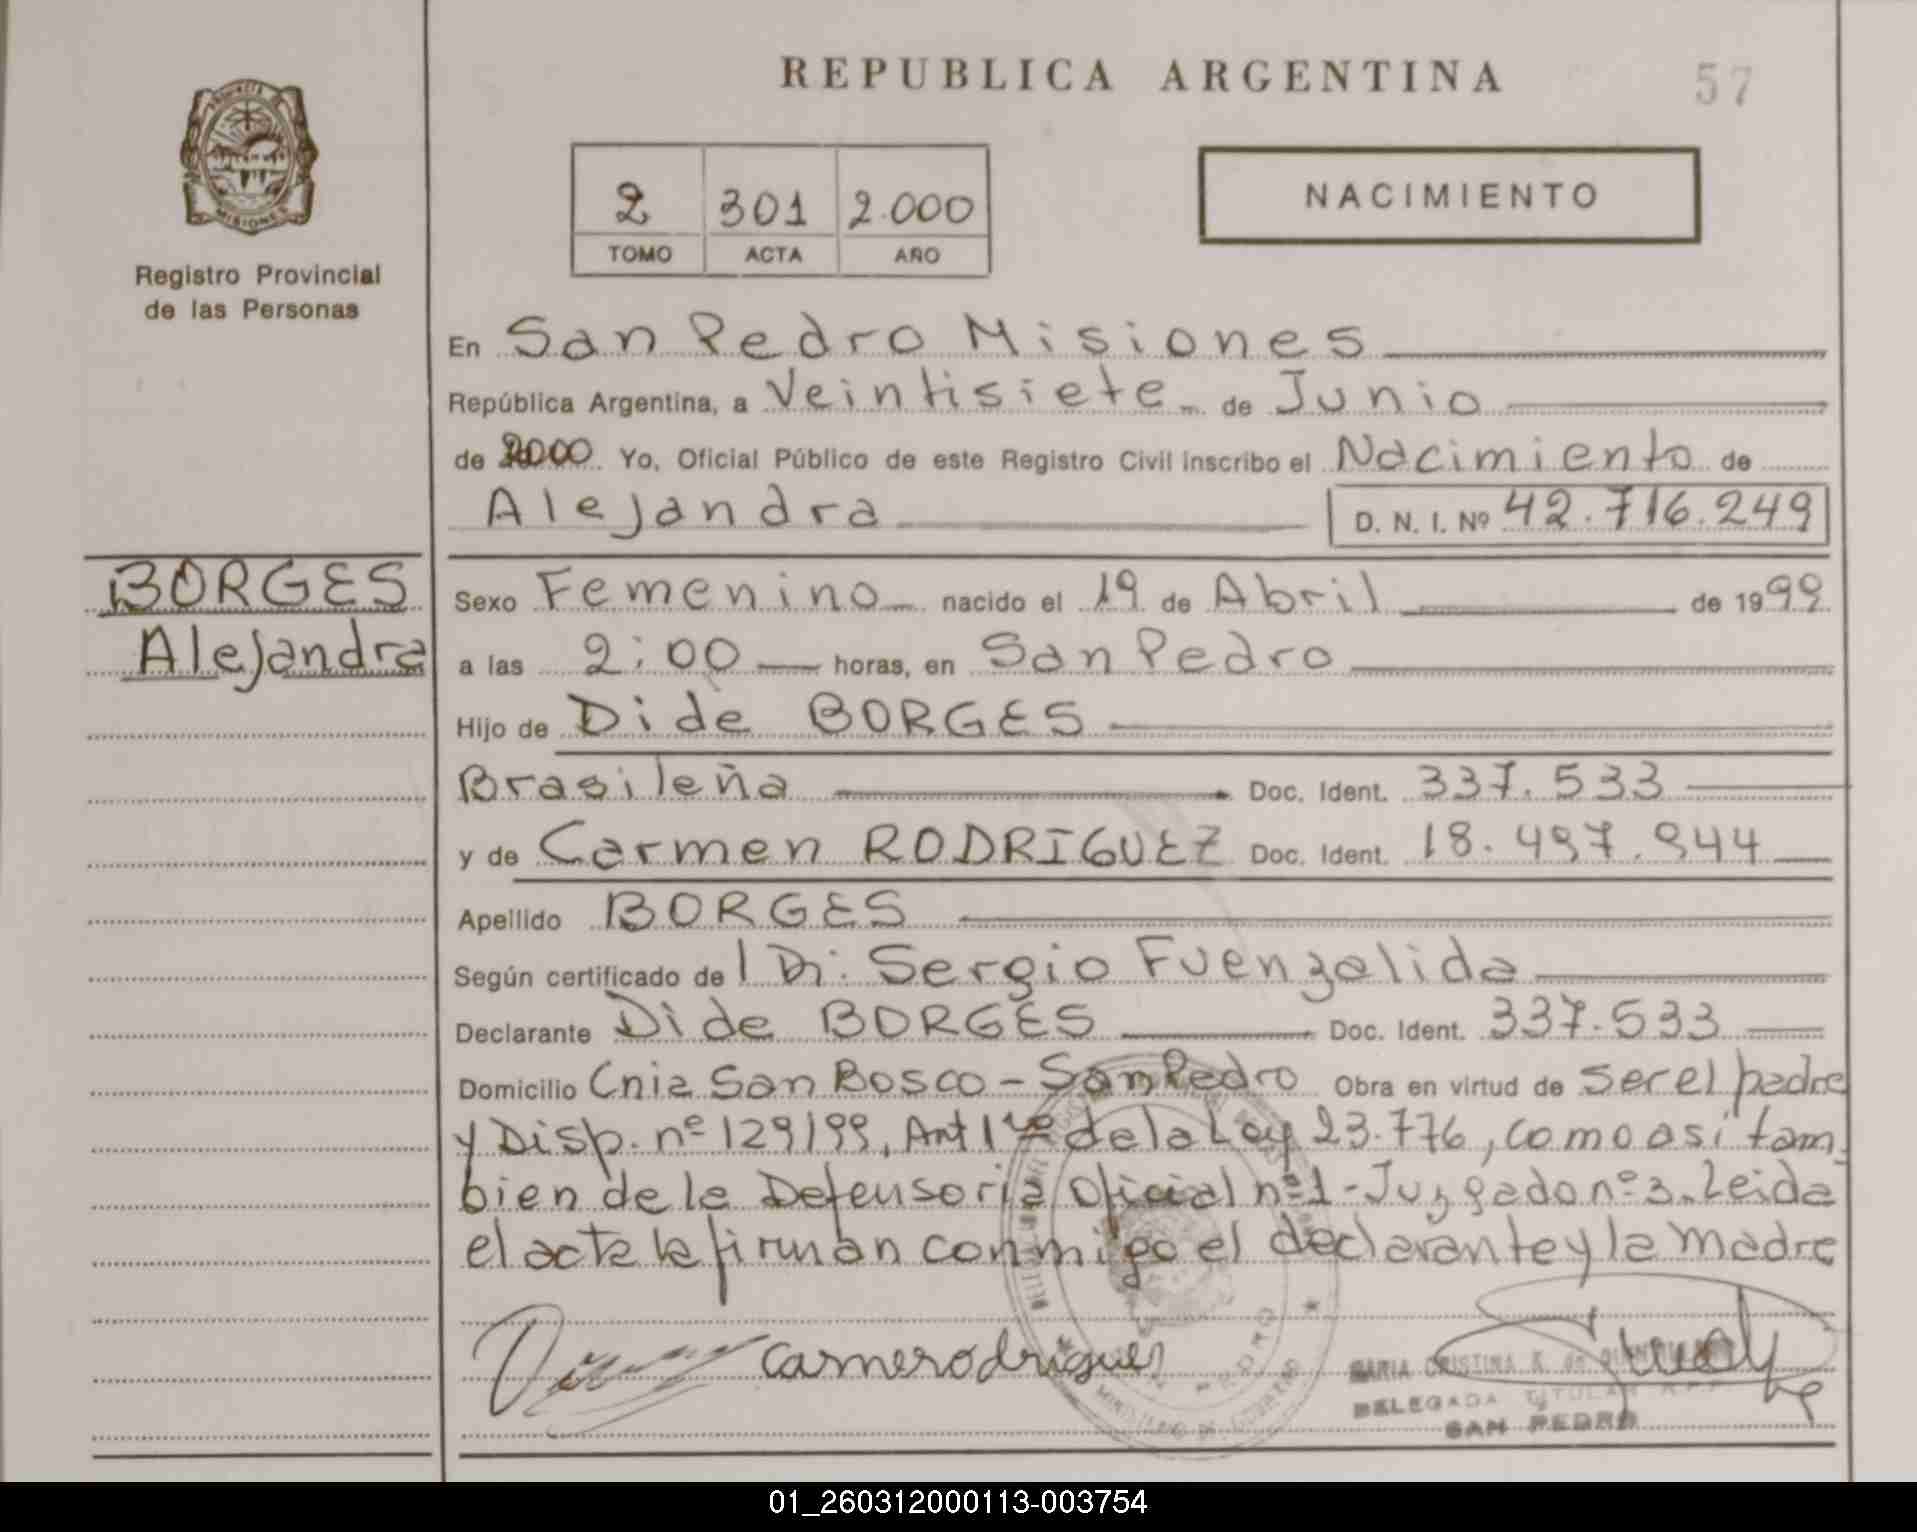 REPUBLICA ARGENTINA
57
PROVINCIA
MISIONES
Registro Provincial
de las Personas
2 301 2.000
TOMO ACTA AÑO
NACIMIENTO
En San Pedro Misiones
República Argentina, a Veintisiete de Junio
de 2000 Yo, Oficial Público de este Registro Civil inscribo el Nacimiento de
Alejandra D. N. I. Nº 42.716.249
BORGES
Alejandra
Sexo Femenino nacido el 19 de Abril de 1999
a las 2:00 horas, en San Pedro
Hijo de Dide BORGES
Brasileña Doc. Ident. 337.533
y de Carmen RODRIGUEZ Doc. Ident. 18.497.944
Apellido BORGES
Según certificado de Dr. Sergio Fuenzalida
Declarante Dide BORGES Doc. Ident. 337.533
Domicilio Cnia San Bosco - San Pedro Obra en virtud de ser el padre
y Disp. nº 129/99, Art 1ro de la Ley 23.776, como asi tam
bien de la Defensoria Oficial nº 1 - Juzgado nº 3. Leida
el acta la firman conmigo el declarante y la madre
carmerodrigues
MARIA CRISTINA K. de
DELEGADA TITULAR R.P.P.
SAN PEDRO
01_260312000113-003754